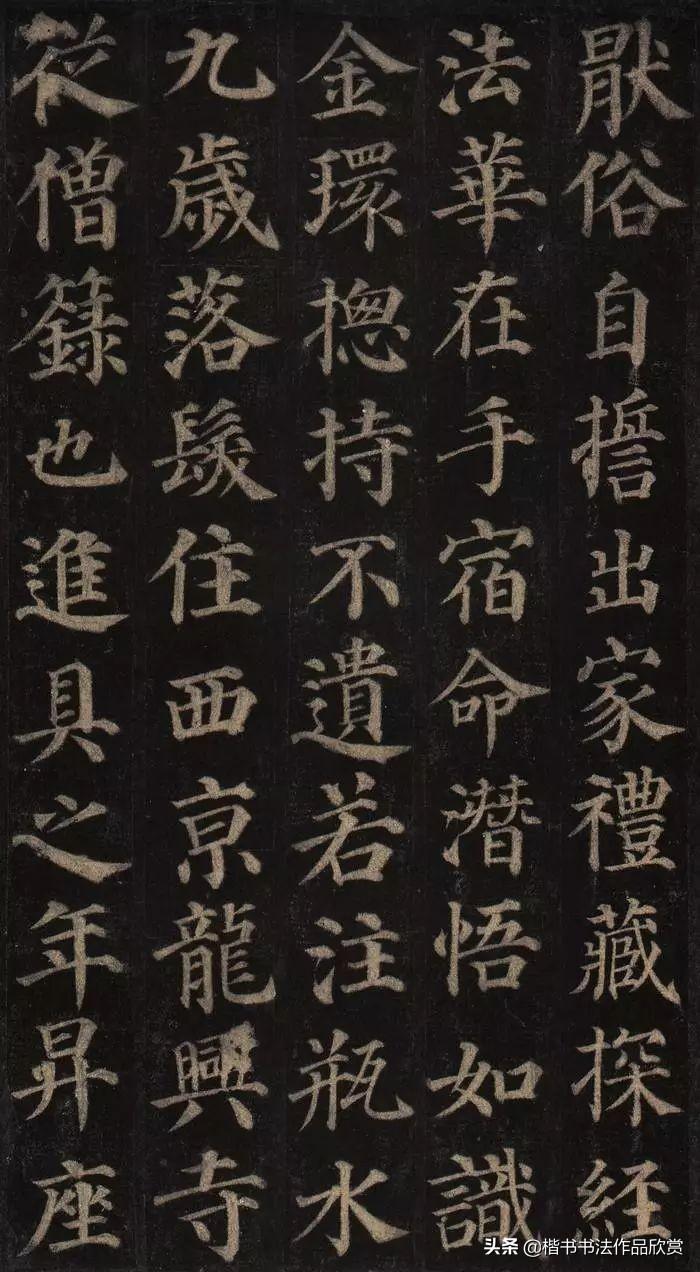 猒俗自誓出家禮藏探經
法華在手宿命潛悟如識
金環揔持不遺若注瓶水
九歲落髮住西京龍興寺
從僧籙也進具之年昇座
头条 @楷书书法作品欣赏